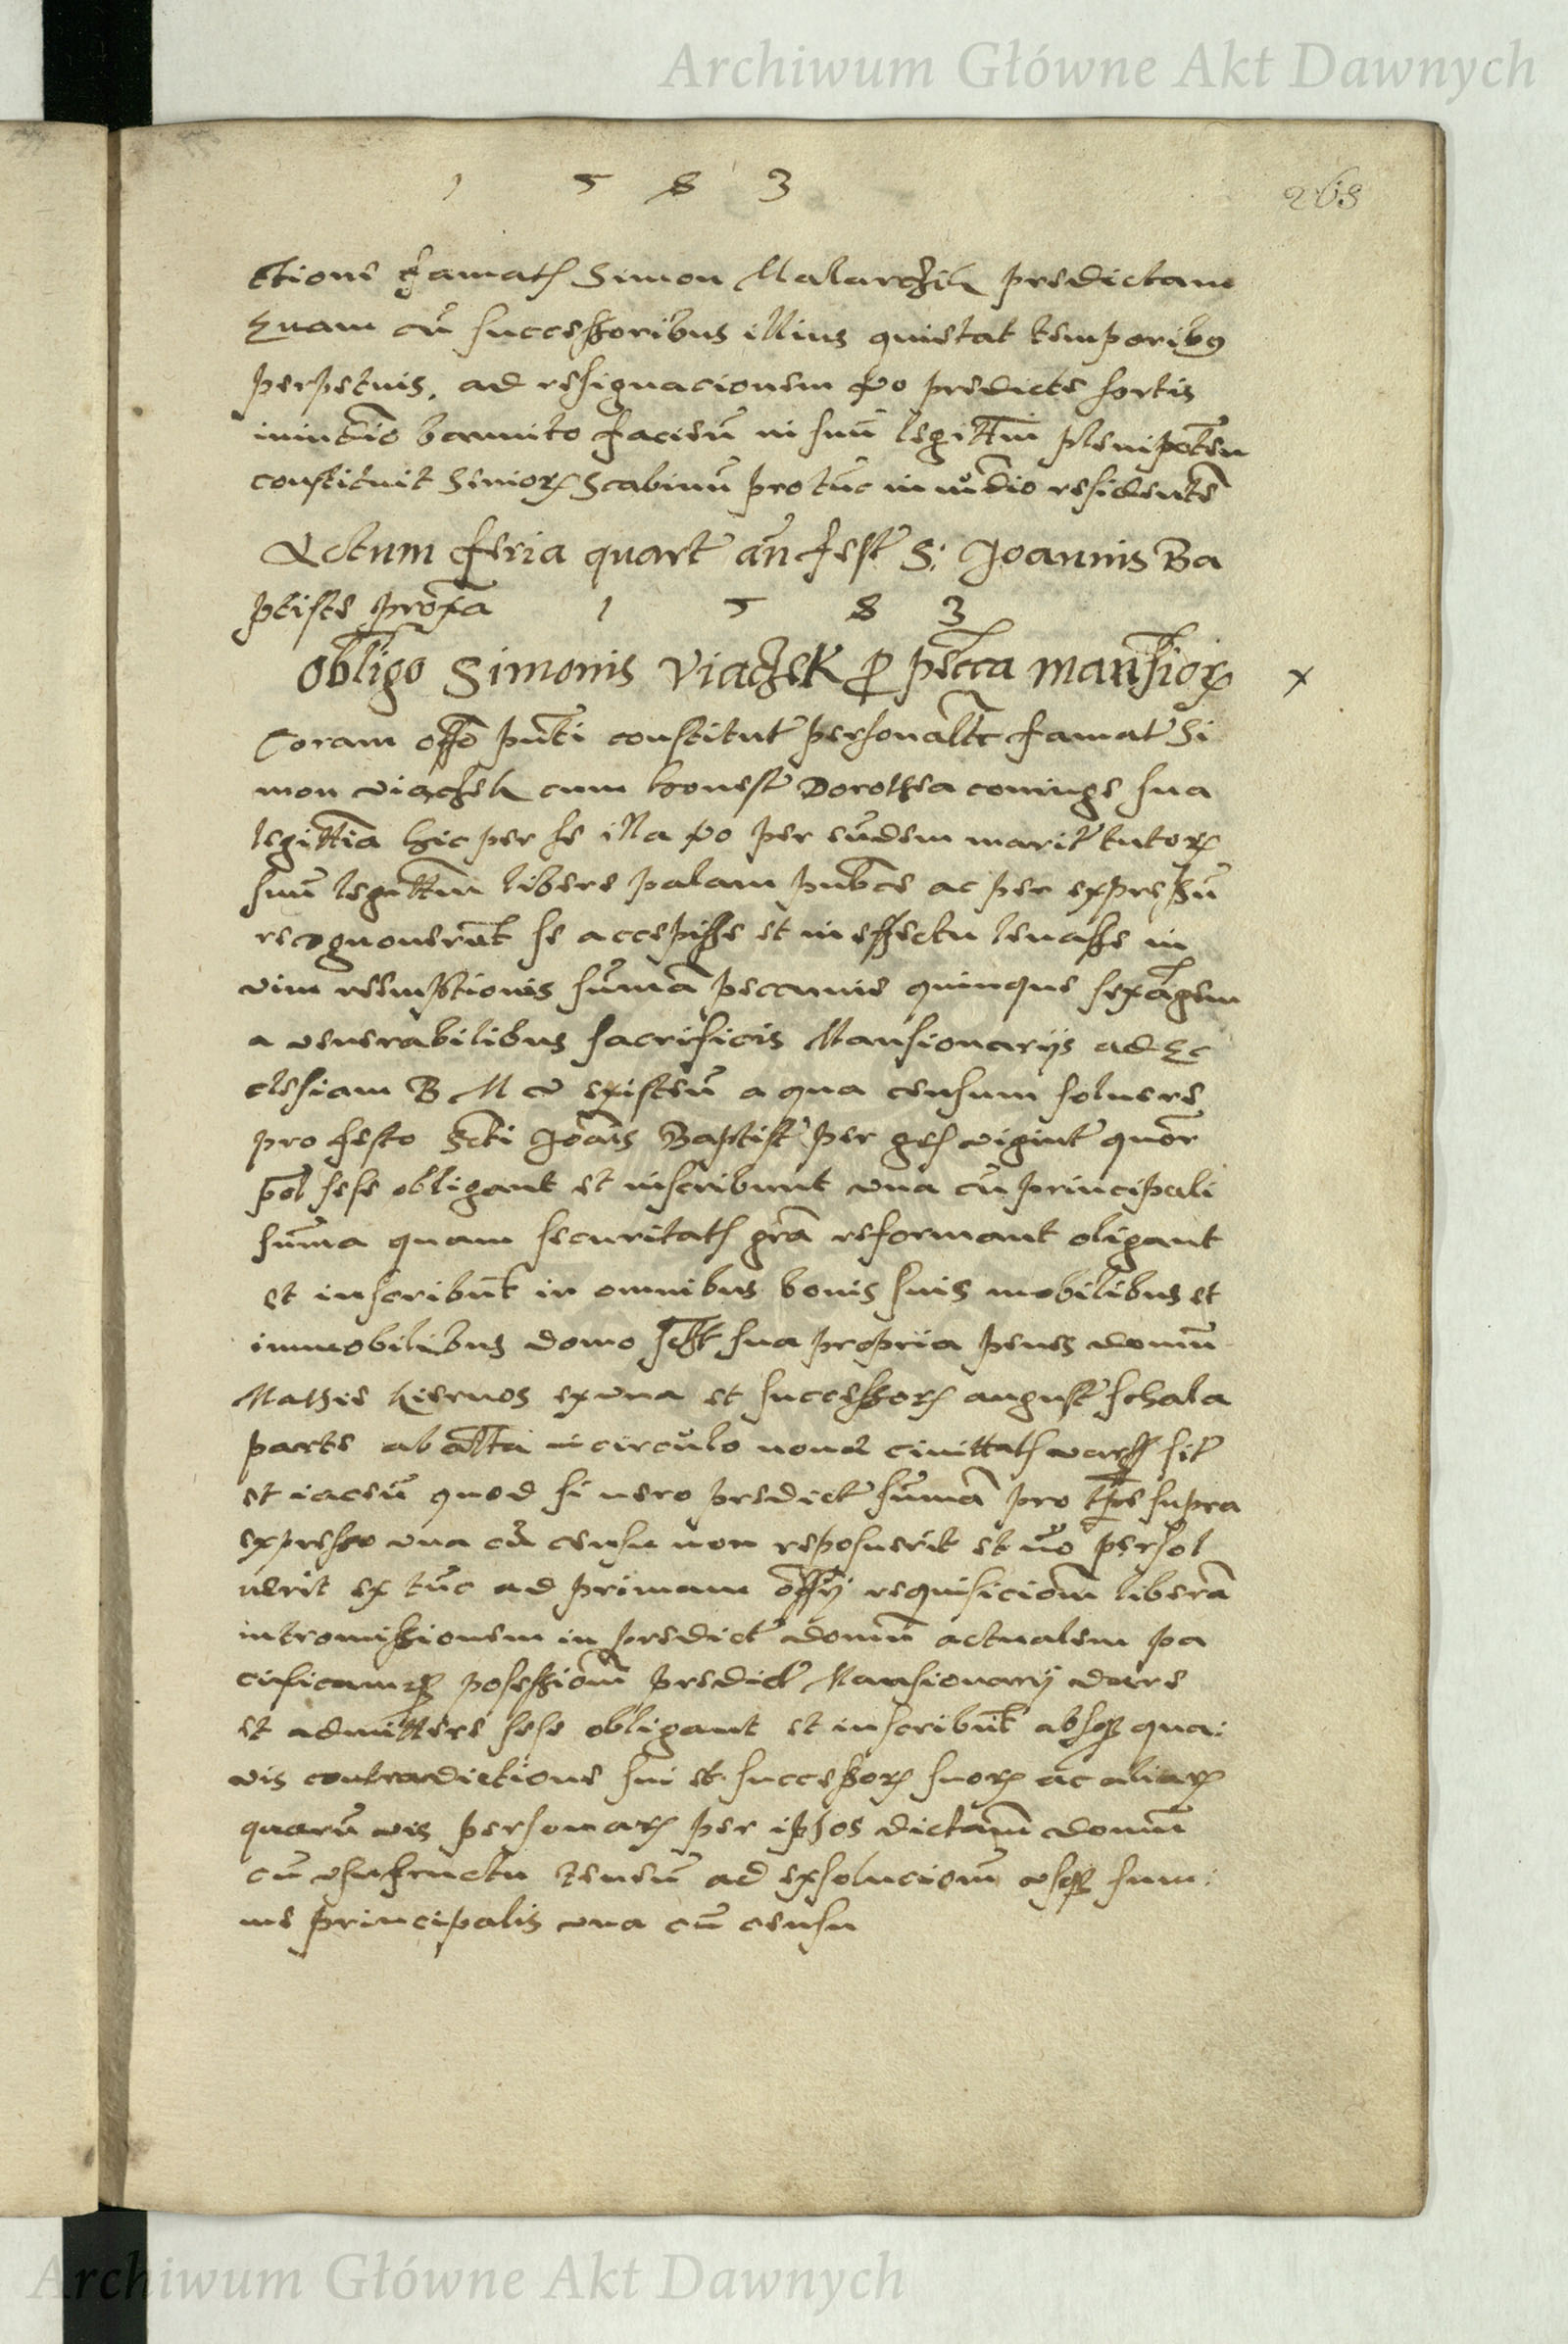 Archiwum Główne Akt Dawnych
1 5 8 3
268
ctione famat Simon Malarchik predictam
Euam cū successoribus illius quietat temporibus
perpetuis, ad resignacionem vo predicte sortis
in iudicio bannito faciēn in suū legittim plenipotēn
constituit Senior Scabinū pro tūc in iudicio residentē
Actum feria quart an fest S: Joannis Ba
ptiste proxa 1 5 8 3
obligo Simonis Viaczek p pecca mansior x
Coram offo pnti constitut personaltr famat Si
mon viaczek cum honest Dorothea coniuge sua
legittia hic per se illa vo per eūdem marit tutor
suū legittim libere palam publce ac per expressū
recognouerūt se accepisse et in effectu leuasse in
vim reemptionis sūmā peccunie quinque sexagem
a venerabilibus sacrificis Mansionarijs ad Ec
clesiam B M V existeñ a qua censum soluere
pro festo Scti Joāis Baptist per ges vigint quor
pol sese obligant et inscribunt vna cū principali
sūma quam securitat gra reformant oligant
et inscribūt in omnibus bonis suis mobilibus et
immobilibus domo sua propria penes domū
Mathie Kiernos ex vna et successor august schala
parte ab altā in circulo noue ciuittat wars sit
et iaceñ quod si uero predict sūmā pro tpe supra
expresso vna cū censu non reposuerit et vo persol
uerit ex tūc ad primam offij requisiciom liberā
intromissionem in predict domū actualem pa
cificamque posessiom predict Mansionarij dare
et admittere sese obligant et inscribūt absque qua:
vis contradictione sui et successor suor ac aliar
quarū vis personar per ipsos dictam domū
cū vsufructu teneñ ad exsoluciom vsque sum:
me principalis vna cū censu
Archiwum Główne Akt Dawnych